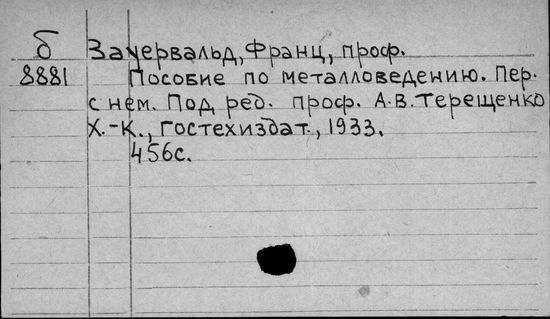 б Зауервальд, Франц, проф.
8881 Пособие по металловедению. Пер.
с нем. Под ред. проф. А.В. Терещенко
Х.-К., Гостехиздат, 1933.
456с.